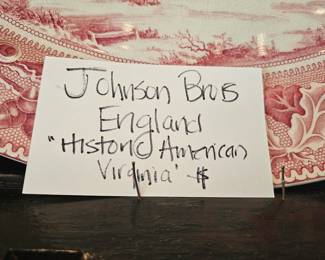 Johnson Bros
England
"Historic American
Virginia" $